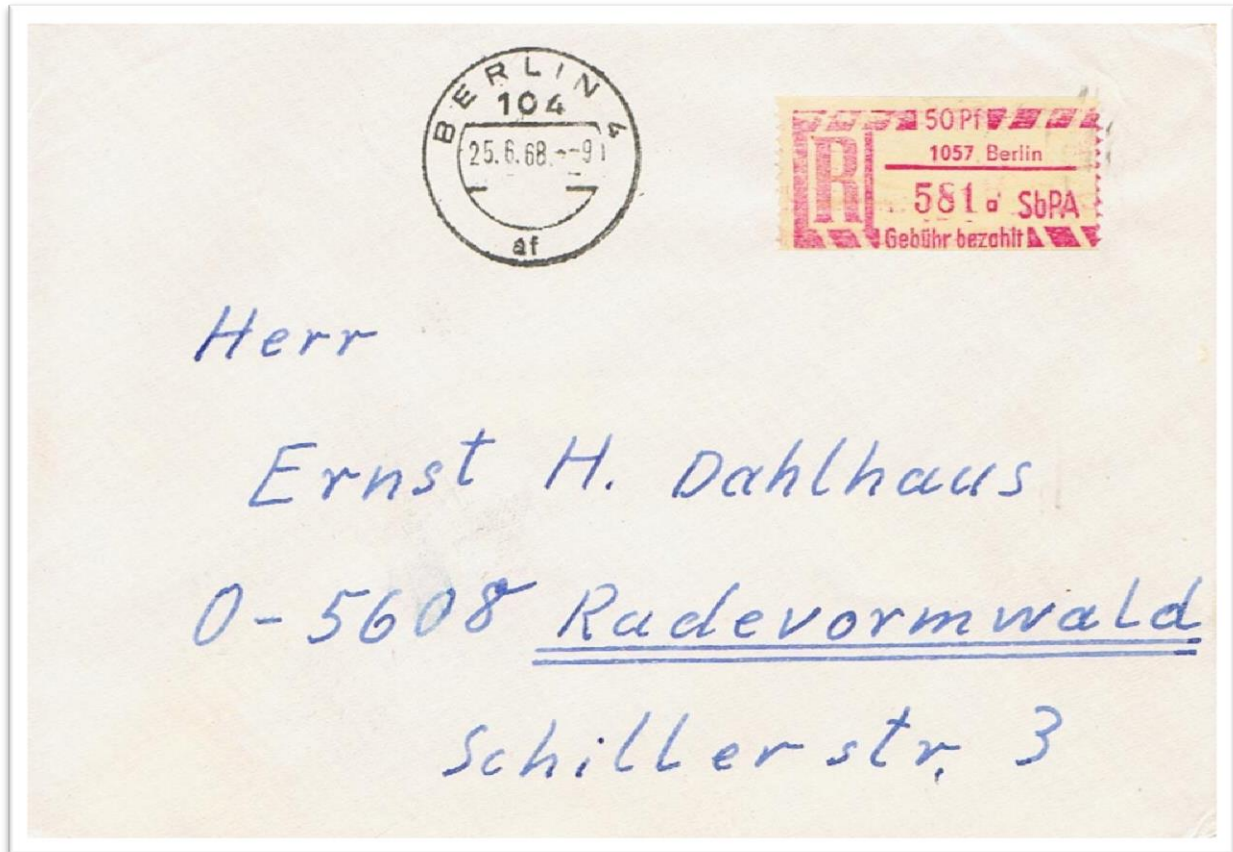 BERLIN 4
104
25.6.68.--9
af
50 Pf
1057 Berlin
R
581 SbPA
Gebühr bezahlt
Herr
Ernst H. Dahlhaus
D-5608 Radevormwald
Schillerstr. 3